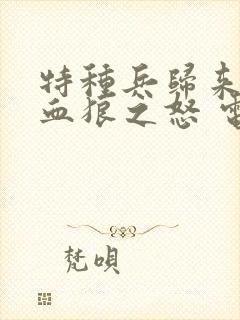 特種兵歸來
血狼之怒
梵唄